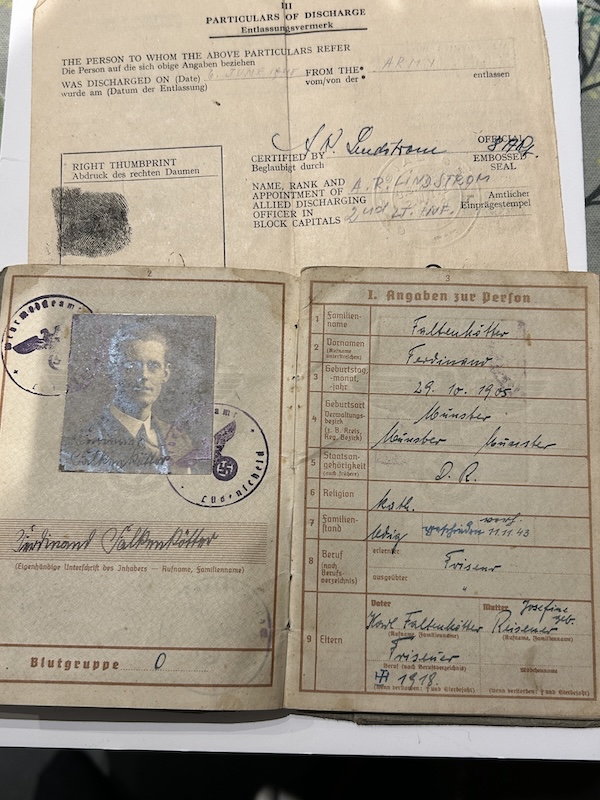 III
PARTICULARS OF DISCHARGE
Entlassungsvermerk
THE PERSON TO WHOM THE ABOVE PARTICULARS REFER
Die Person auf die sich obige Angaben beziehen
WAS DISCHARGED ON (Date) 6. JUNE FROM THE* ARMY
wurde am (Datum der Entlassung) vom/von der* entlassen
RIGHT THUMBPRINT
Abdruck des rechten Daumen
CERTIFIED BY A R Lindstrom
Beglaubigt durch
OFFICIAL
EMBOSSED
SEAL
NAME, RANK AND A. R. LINDSTROM
APPOINTMENT OF
ALLIED DISCHARGING
OFFICER IN 2nd LT. INF.
BLOCK CAPITALS
Amtlicher
Einprägestempel
2
Lüdenscheid
Ferdinand Falkenkötter
(Eigenhändige Unterschrift des Inhabers — Rufname, Familienname)
Blutgruppe O
3
I. Angaben zur Person
1 Familienname Falkenkötter
2 Vornamen (Rufname unterstreichen) Ferdinand
3 Geburtstag, -monat, -jahr 29. 10. 1905
4 Geburtsort Münster
Verwaltungsbezirk (z. B. Kreis, Reg. Bezirk) Münster Münster
5 Staatsangehörigkeit (auch früher) D. R.
6 Religion kath.
7 Familienstand ledig verh. 11.11.43
8 Beruf (nach Berufsverzeichnis) erlernter Friseur
ausgeübter "
9 Eltern
Vater Karl Falkenkötter
(Rufname, Familienname)
Mutter Josefine geb. Reisener
(Rufname, Familienname)
Friseur
Beruf (nach Berufsverzeichnis)
Mädchenname
1918.
(wenn verstorben: † und Sterbejahr)
(wenn verstorben: † und Sterbejahr)